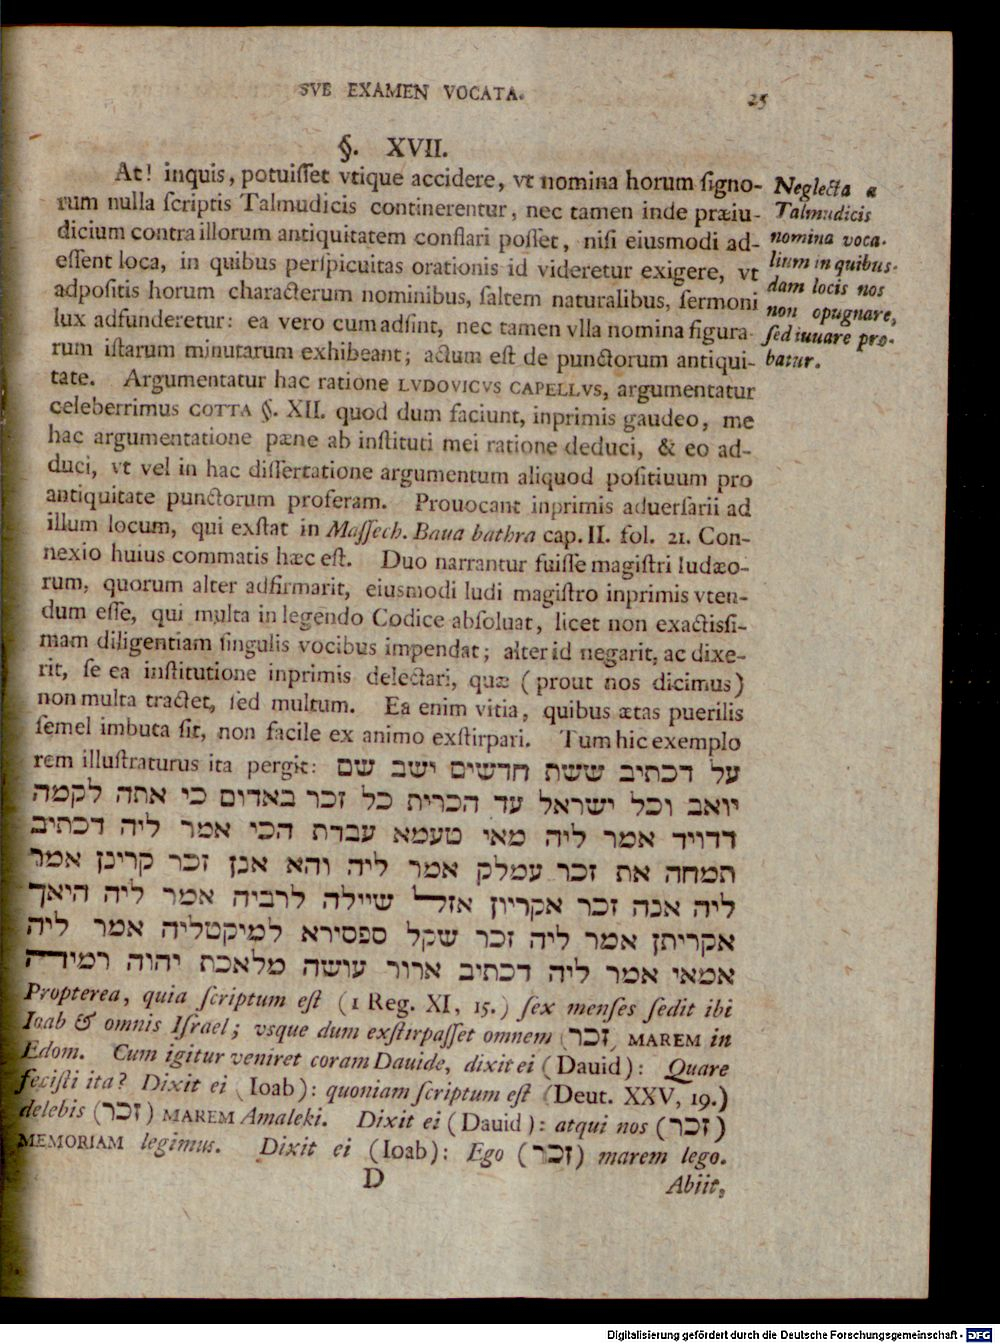 SVE EXAMEN VOCATA. 25
§. XVII.
At! inquis, potuiſſet vtique accidere, vt nomina horum ſigno-
rum nulla ſcriptis Talmudicis continerentur, nec tamen inde præiu-
dicium contra illorum antiquitatem conflari poſſet, niſi eiusmodi ad-
eſſent loca, in quibus perſpicuitas orationis id videretur exigere, vt
adpoſitis horum characterum nominibus, ſaltem naturalibus, ſermoni
lux adfunderetur: ea vero cum adſint, nec tamen vlla nomina figura-
rum iſtarum minutarum exhibeant; actum eſt de punctorum antiqui-
tate. Argumentatur hac ratione LVDOVICVS CAPELLVS, argumentatur
celeberrimus COTTA §. XII. quod dum faciunt, inprimis gaudeo, me
hac argumentatione pæne ab inſtituti mei ratione deduci, & eo ad-
duci, vt vel in hac diſſertatione argumentum aliquod poſitiuum pro
antiquitate punctorum proferam. Prouocant inprimis aduerſarii ad
illum locum, qui exſtat in Maſſech. Baua bathra cap. II. fol. 21. Con-
nexio huius commatis hæc eſt. Duo narrantur fuiſſe magiſtri Iudæo-
rum, quorum alter adfirmarit, eiusmodi ludi magiſtro inprimis vten-
dum eſſe, qui multa in legendo Codice abſoluat, licet non exactisſi-
mam diligentiam ſingulis vocibus impendat; alter id negarit, ac dixe-
rit, ſe ea inſtitutione inprimis delectari, quæ (prout nos dicimus)
non multa tractet, ſed multum. Ea enim vitia, quibus ætas puerilis
ſemel imbuta ſit, non facile ex animo exſtirpari. Tum hic exemplo
rem illuſtraturus ita pergit: על דכתיב ששת חדשים ישב שם
יואב וכל ישראל עד הכרית כל זכר באדום כי אתה לקמה
דדויד אמר ליה מאי טעמא עבדת הכי אמר ליה דכתיב
תמחה את זכר עמלק אמר ליה והא אנן זכר קרינן אמר
ליה אנה זכר אקריון אזל שיילה לרביה אמר ליה היאך
אקריתן אמר ליה זכר שקל ספסירא למיקטליה אמר ליה
אמאי אמר ליה דכתיב ארור עושה מלאכת יהוה רמידה
Propterea, quia ſcriptum eſt (1 Reg. XI, 15.) ſex menſes ſedit ibi
Ioab & omnis Iſrael; vsque dum exſtirpaſſet omnem (זכר) MAREM in
Edom. Cum igitur veniret coram Dauide, dixit ei (Dauid): Quare
feciſti ita? Dixit ei (Ioab): quoniam ſcriptum eſt (Deut. XXV, 19.)
delebis (זכר) MAREM Amaleki. Dixit ei (Dauid): atqui nos (זכר)
MEMORIAM legimus. Dixit ei (Ioab): Ego (זכר) marem lego.
D Abiit,
Neglecta a
Talmudicis
nomina voca-
lium in quibus-
dam locis nos
non opugnare,
ſed iuuare pro-
batur.
Digitalisierung gefördert durch die Deutsche Forschungsgemeinschaft - DFG